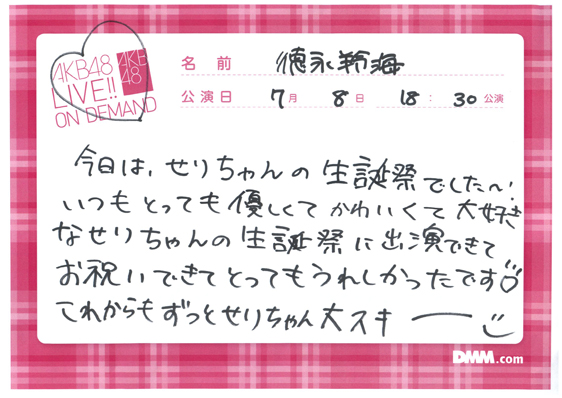 AKB48
LIVE!!
ON DEMAND
AKB
48
名前 徳永羚海
公演日 7月 8日 18:30公演
今日は、せりちゃんの生誕祭でした〜!
いつもとっても優しくてかわいくて大好き
なせりちゃんの生誕祭に出演できて
お祝いできてとってもうれしかったです
これからもずっとせりちゃん大スキー
DMM.com